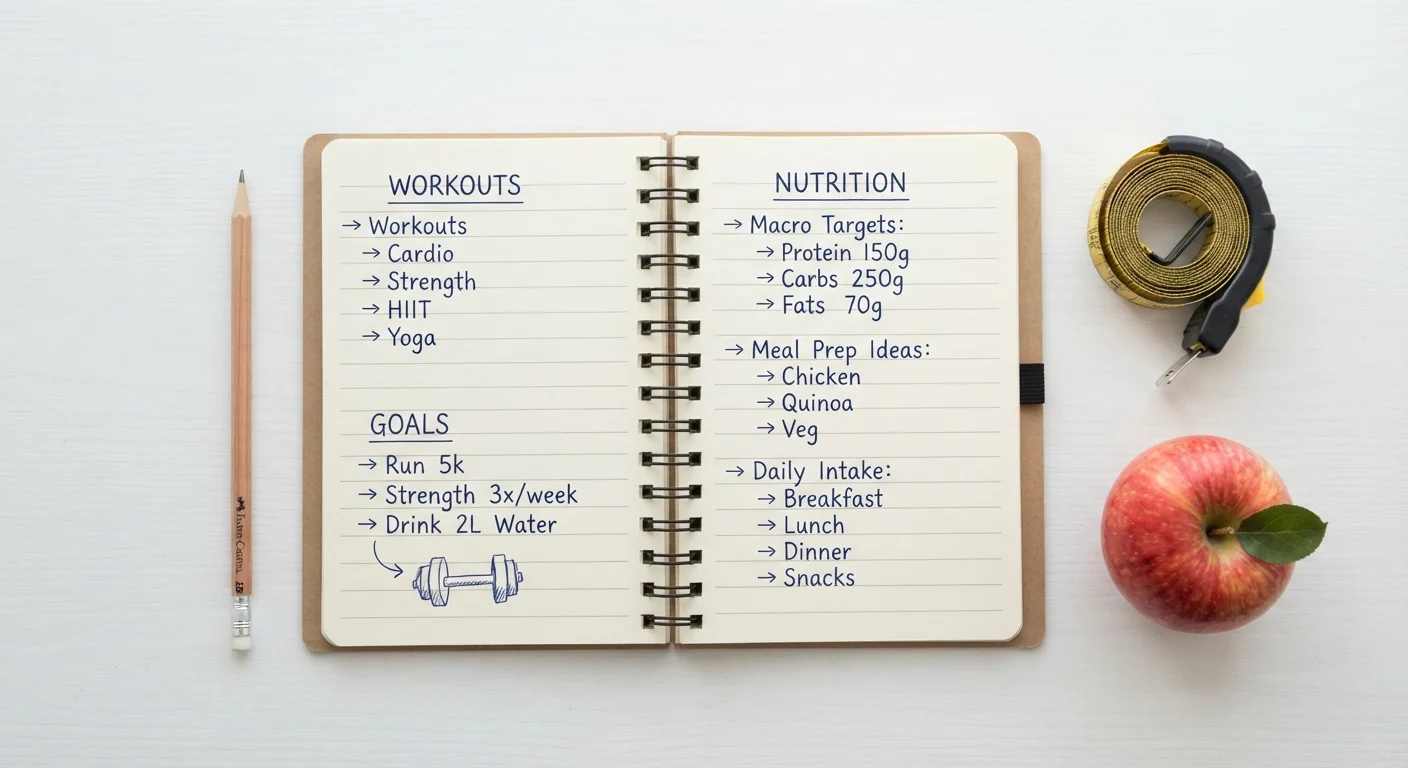 WORKOUTS
→ Workouts
→ Cardio
→ Strength
→ HIIT
→ Yoga
GOALS
→ Run 5k
→ Strength 3x/week
→ Drink 2L Water
NUTRITION
→ Macro Targets:
→ Protein 150g
→ Carbs 250g
→ Fats 70g
→ Meal Prep Ideas:
→ Chicken
→ Quinoa
→ Veg
→ Daily Intake:
→ Breakfast
→ Lunch
→ Dinner
→ Snacks